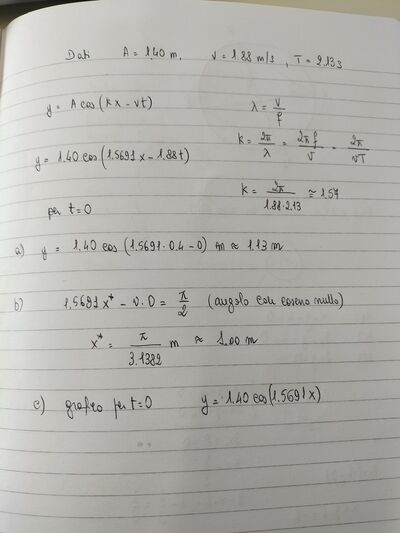 Dati A = 1.40 m. v = 1.88 m/s , T = 2.13 s
y = A cos (kx - vt)
λ = v/f
k = 2π/λ = 2πf/v = 2π/vT
y = 1.40 cos (1.5691x - 1.88t)
k = 2π/1.88·2.13 ≅ 1.57
per t=0
a) y = 1.40 cos (1.5691·0.4 - 0) m ≈ 1.13 m
b) 1.5691 x* - v.0 = π/2 (angolo con coseno nullo)
x* = π/3.1382 m ≈ 1.00 m
c) grafico per t=0 y = 1.40 cos(1.5691x)